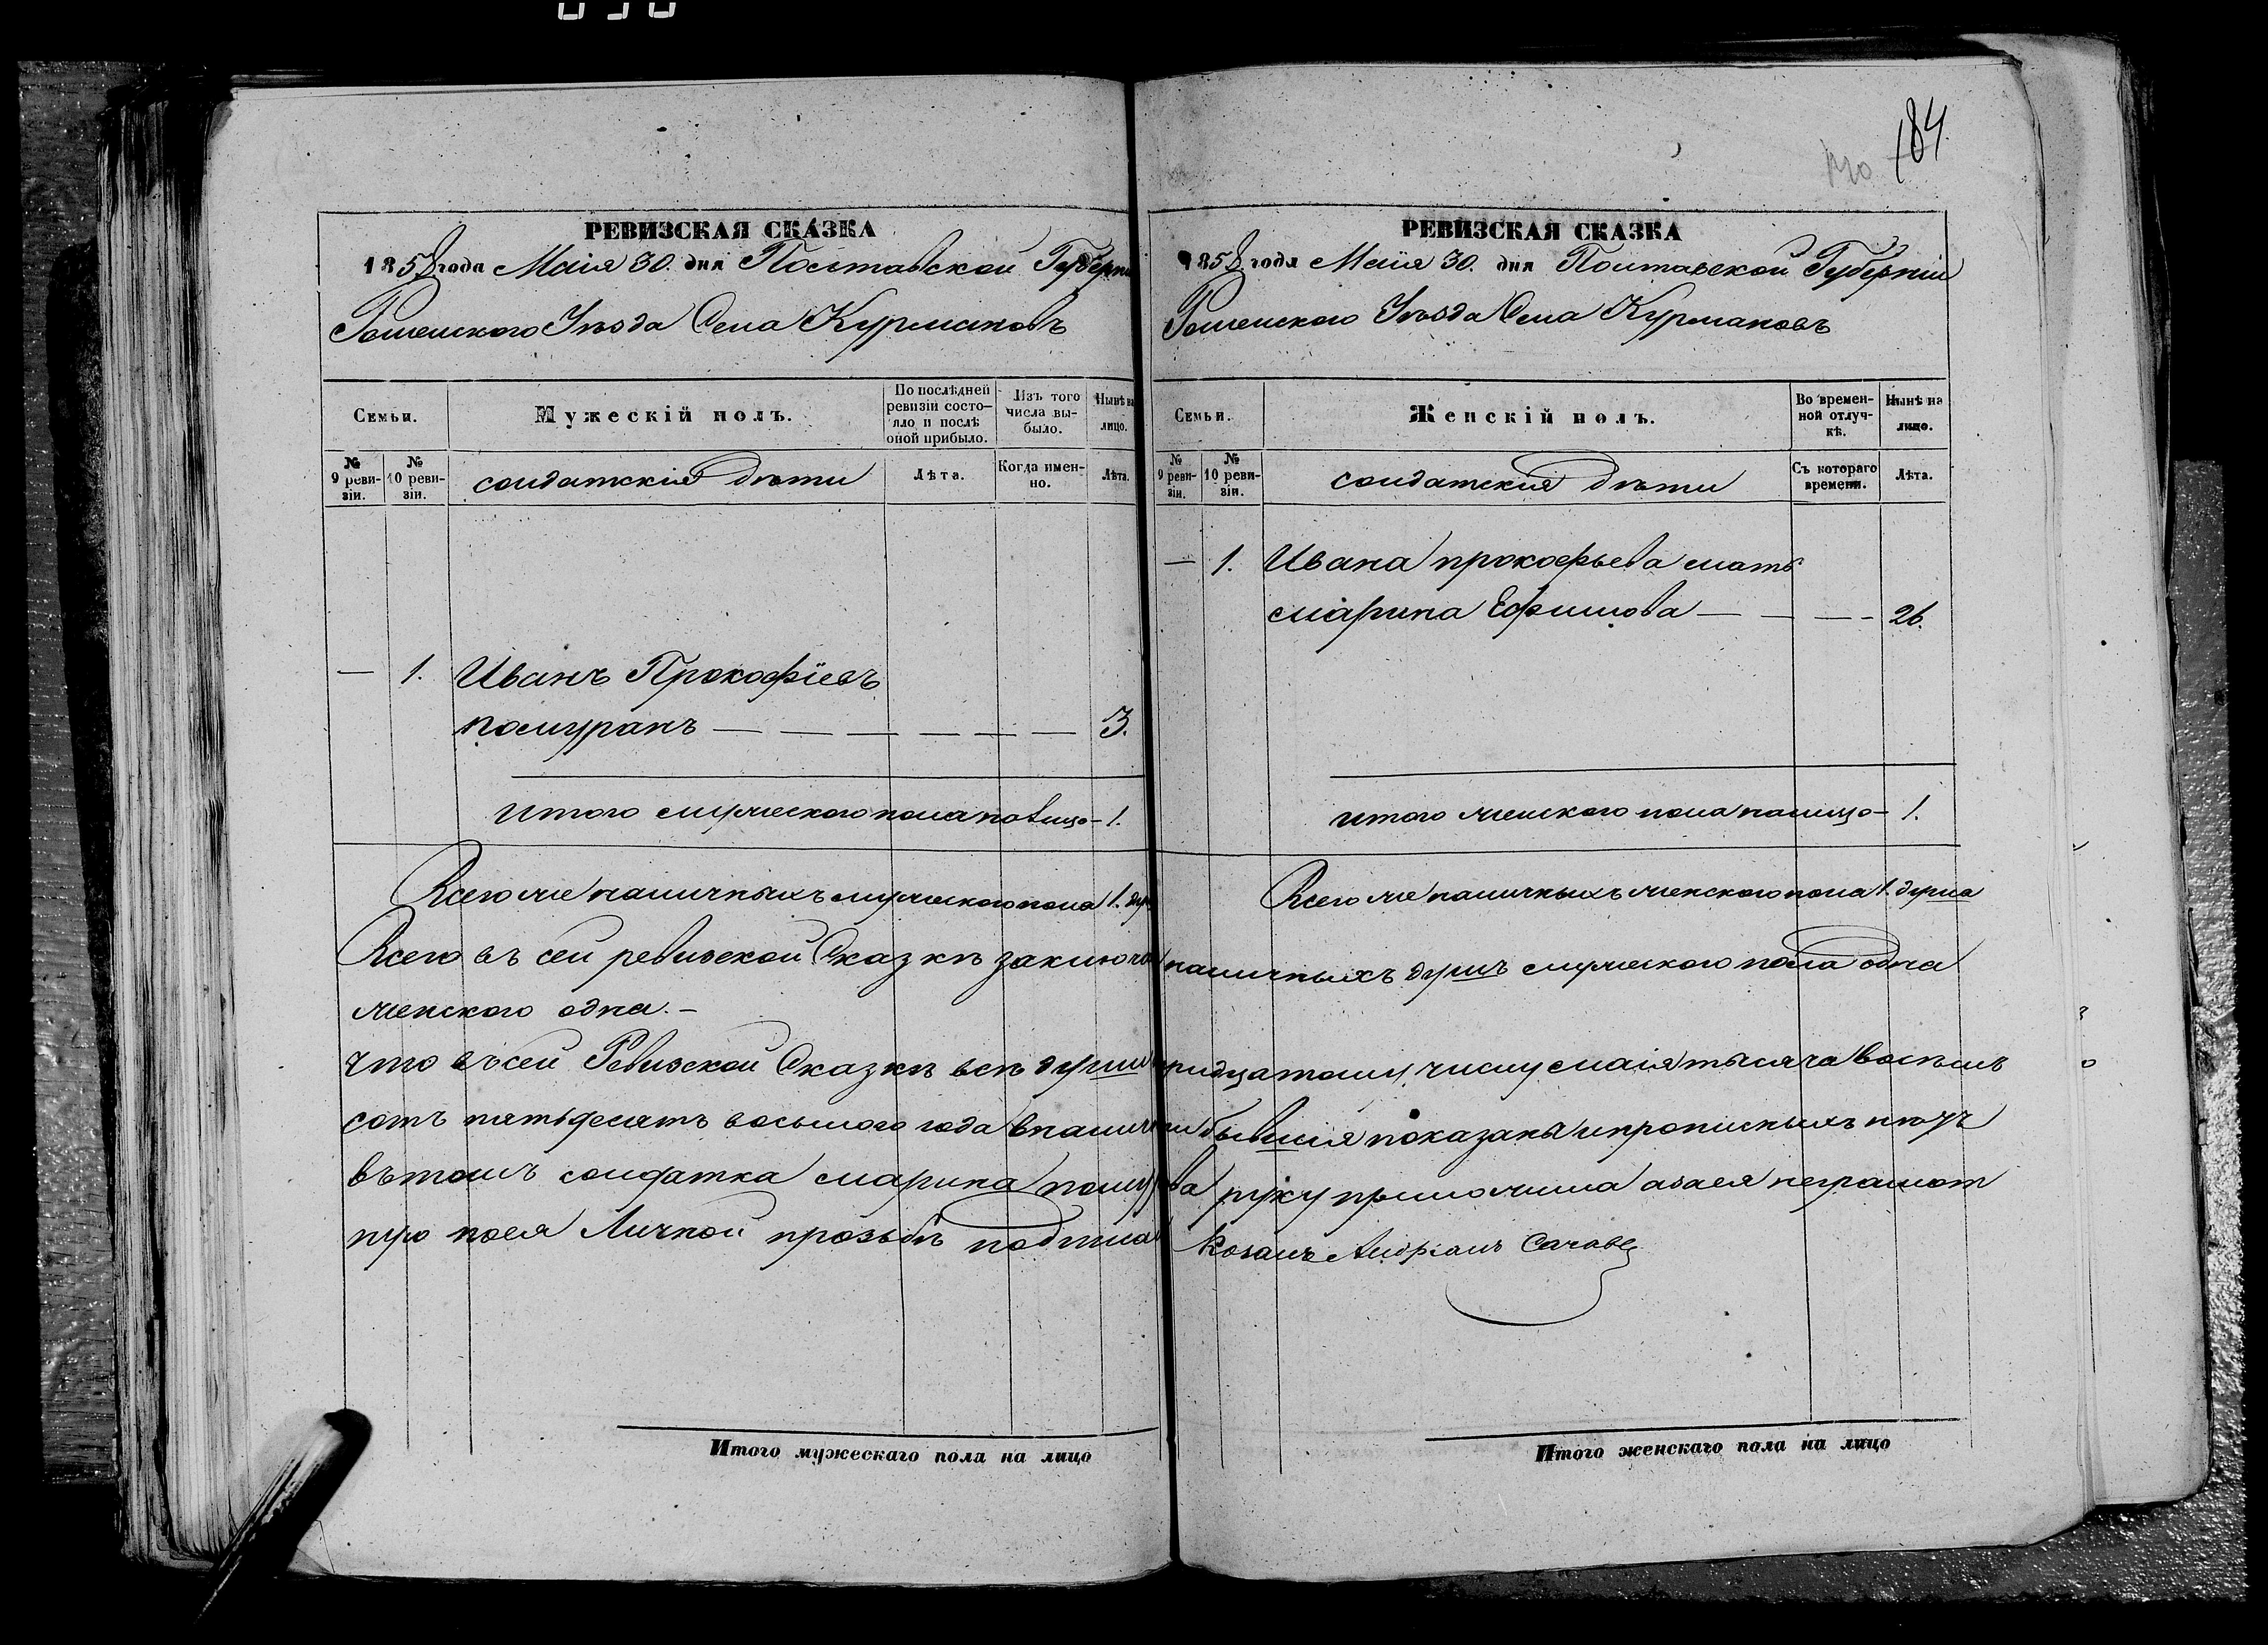 184.
РЕВИЗСКАЯ СКАЗКА
1858 года Маія 30. дня Полтавской Губерніи
Роменского Уѣзда Села Курмановъ
Семьи.
Мужескій полъ.
По послѣдней ревизіи состояло и послѣ оной прибыло.
Изъ того числа выбыло.
Нынѣ на лицо.
№ 9 ревизіи.
№ 10 ревизіи.
солдатскія дѣти
Лѣта.
Когда именно.
Лѣта.
— 1. Иванъ Прокофіевъ
— — — — — — 3.
итого мужеского пола налицо — 1.
Всего же наличныхъ мужеского пола 1. душ
РЕВИЗСКАЯ СКАЗКА
1858 года Маія 30. дня Полтавской Губерніи
Роменского Уѣзда Села Курмановъ
Семьи.
Женскій полъ.
Во временной отлучкѣ.
Нынѣ на лицо.
№ 9 ревизіи.
№ 10 ревизіи.
солдатскія дѣти
Съ котораго времени.
Лѣта.
— 1. Ивана прокофьева мать
марина Ефимова — — — - 26.
итого женского пола налицо — 1.
Всего же наличныхъ женского пола 1. душа
Всего въ сей ревизской Сказкѣ заключа наличныхъ душъ мужеского пола одна
женского одна. —
что въ сей Ревизской Сказкѣ всѣ души тридцатому числу маія тысяча восемь
сотъ пятьдесятъ восьмого года вналич бывшія показаны и прописныхъ нѣтъ
вътомъ солдатка марина руку приложила азаея неграмот
ную поея Личной прозьбѣ подписал Козакъ Андріанъ
Итого мужескаго пола на лицо
Итого женскаго пола на лицо